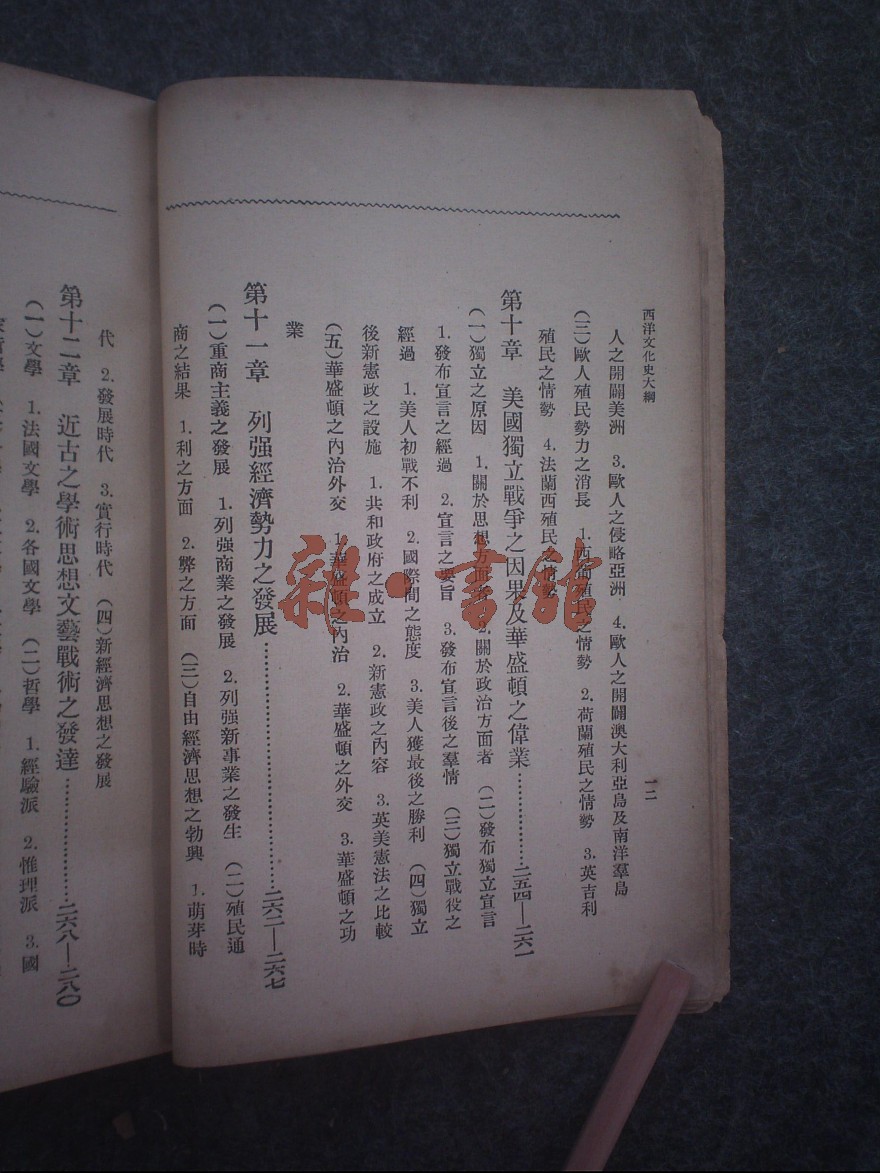 西洋文化史大綱
一二
人之開闢美洲　3.歐人之侵略亞洲　4.歐人之開闢澳大利亞島及南洋羣島
（三）歐人殖民勢力之消長　1.西葡殖民之情勢　2.荷蘭殖民之情勢　3.英吉利
殖民之情勢　4.法蘭西殖民之情勢
第十章　美國獨立戰爭之因果及華盛頓之偉業…………二五四—二六一
（一）獨立之原因　1.關於思想方面者　2.關於政治方面者　（二）發布獨立宣言
1.發布宣言之經過　2.宣言之要旨　3.發布宣言後之羣情　（三）獨立戰役之
經過　1.美人初戰不利　2.國際間之態度　3.美人獲最後之勝利　（四）獨立
後新憲政之設施　1.共和政府之成立　2.新憲政之內容　3.英美憲法之比較
（五）華盛頓之內治外交　1.華盛頓之內治　2.華盛頓之外交　3.華盛頓之功
業
第十一章　列强經濟勢力之發展…………………………二六二—二六七
（一）重商主義之發展　1.列强商業之發展　2.列强新事業之發生　（二）殖民通
商之結果　1.利之方面　2.弊之方面　（三）自由經濟思想之勃興　1.萌芽時
代　2.發展時代　3.實行時代　（四）新經濟思想之發展
第十二章　近古之學術思想文藝戰術之發達……………二六八—二八〇
（一）文學　1.法國文學　2.各國文學　（二）哲學　1.經驗派　2.惟理派　3.國
雜·書館